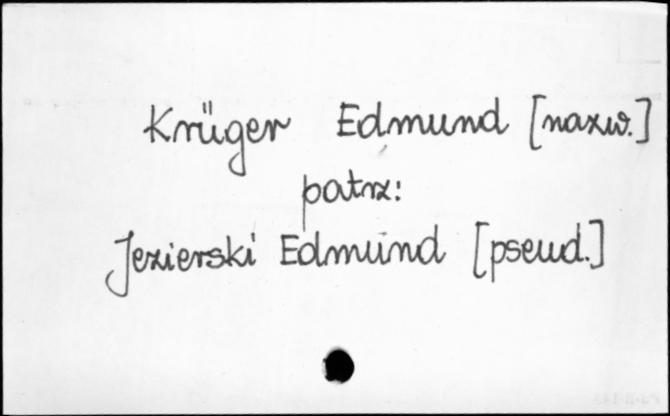 Krüger Edmund [nazw.]
patrz:
Jezierski Edmund [pseud.]